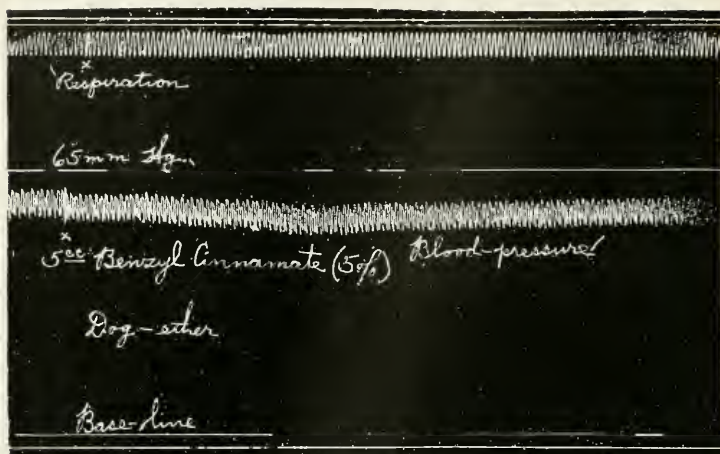 x
Respiration
65 mm Hg.
x
5cc Benzyl Cinnamate (5%) Blood-pressure
Dog-ether
Base-line